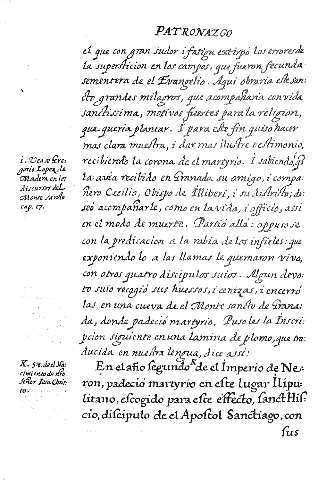 PATRONAZGO
el que con gran sudor i fatiga extirpó los errores de
la supersticion en los campos, que fueron fecunda
sementera de el Evangelio. Aqui obraria este san-
cto grandes milagros, que acompañaria con vida
sanctissima, motivos fuertes para la religion,
que queria plantar. I para este fin quiso hacer
mas clara muestra, i dar mas ilustre testimonio,
recibiendo la corona de el martyrio. I sabiendo que
la avia recibido en Granada su amigo, i compa-
ñero Cecilio, Obispo de Illiberi, i su districto; de-
seó acompañarle, como en la vida, i officio, assi
en el modo de muerte. Partió allá: oppuso se
con la predicacion a la rabia de los infieles: que
exponiendo lo a las llamas le quemaron vivo,
con otros quatro discipulos suios. Algun devo-
to suio recogió sus huessos, i cenizas, i encerró
las en una cueva de el Monte sancto de Grana-
da, donde padeció martyrio. Puso les la Inscri-
pcion siguiente en una lamina de plomo, que tra-
ducida en nuestra lengua, dice assi:
En el año segundo k de el Imperio de Ne-
ron, padeció martyrio en este lugar Ilipu-
litano, escogido para este effecto, sanct His-
cio, discipulo de el Apostol Sanctiago, con
sus
i. Vease Gre-
gorio Lopez de
Madera en los
discursos del
Monte sancto
cap. 27.
K. de el Na-
cimiento de nro
Señor Jesu Chris-
to.